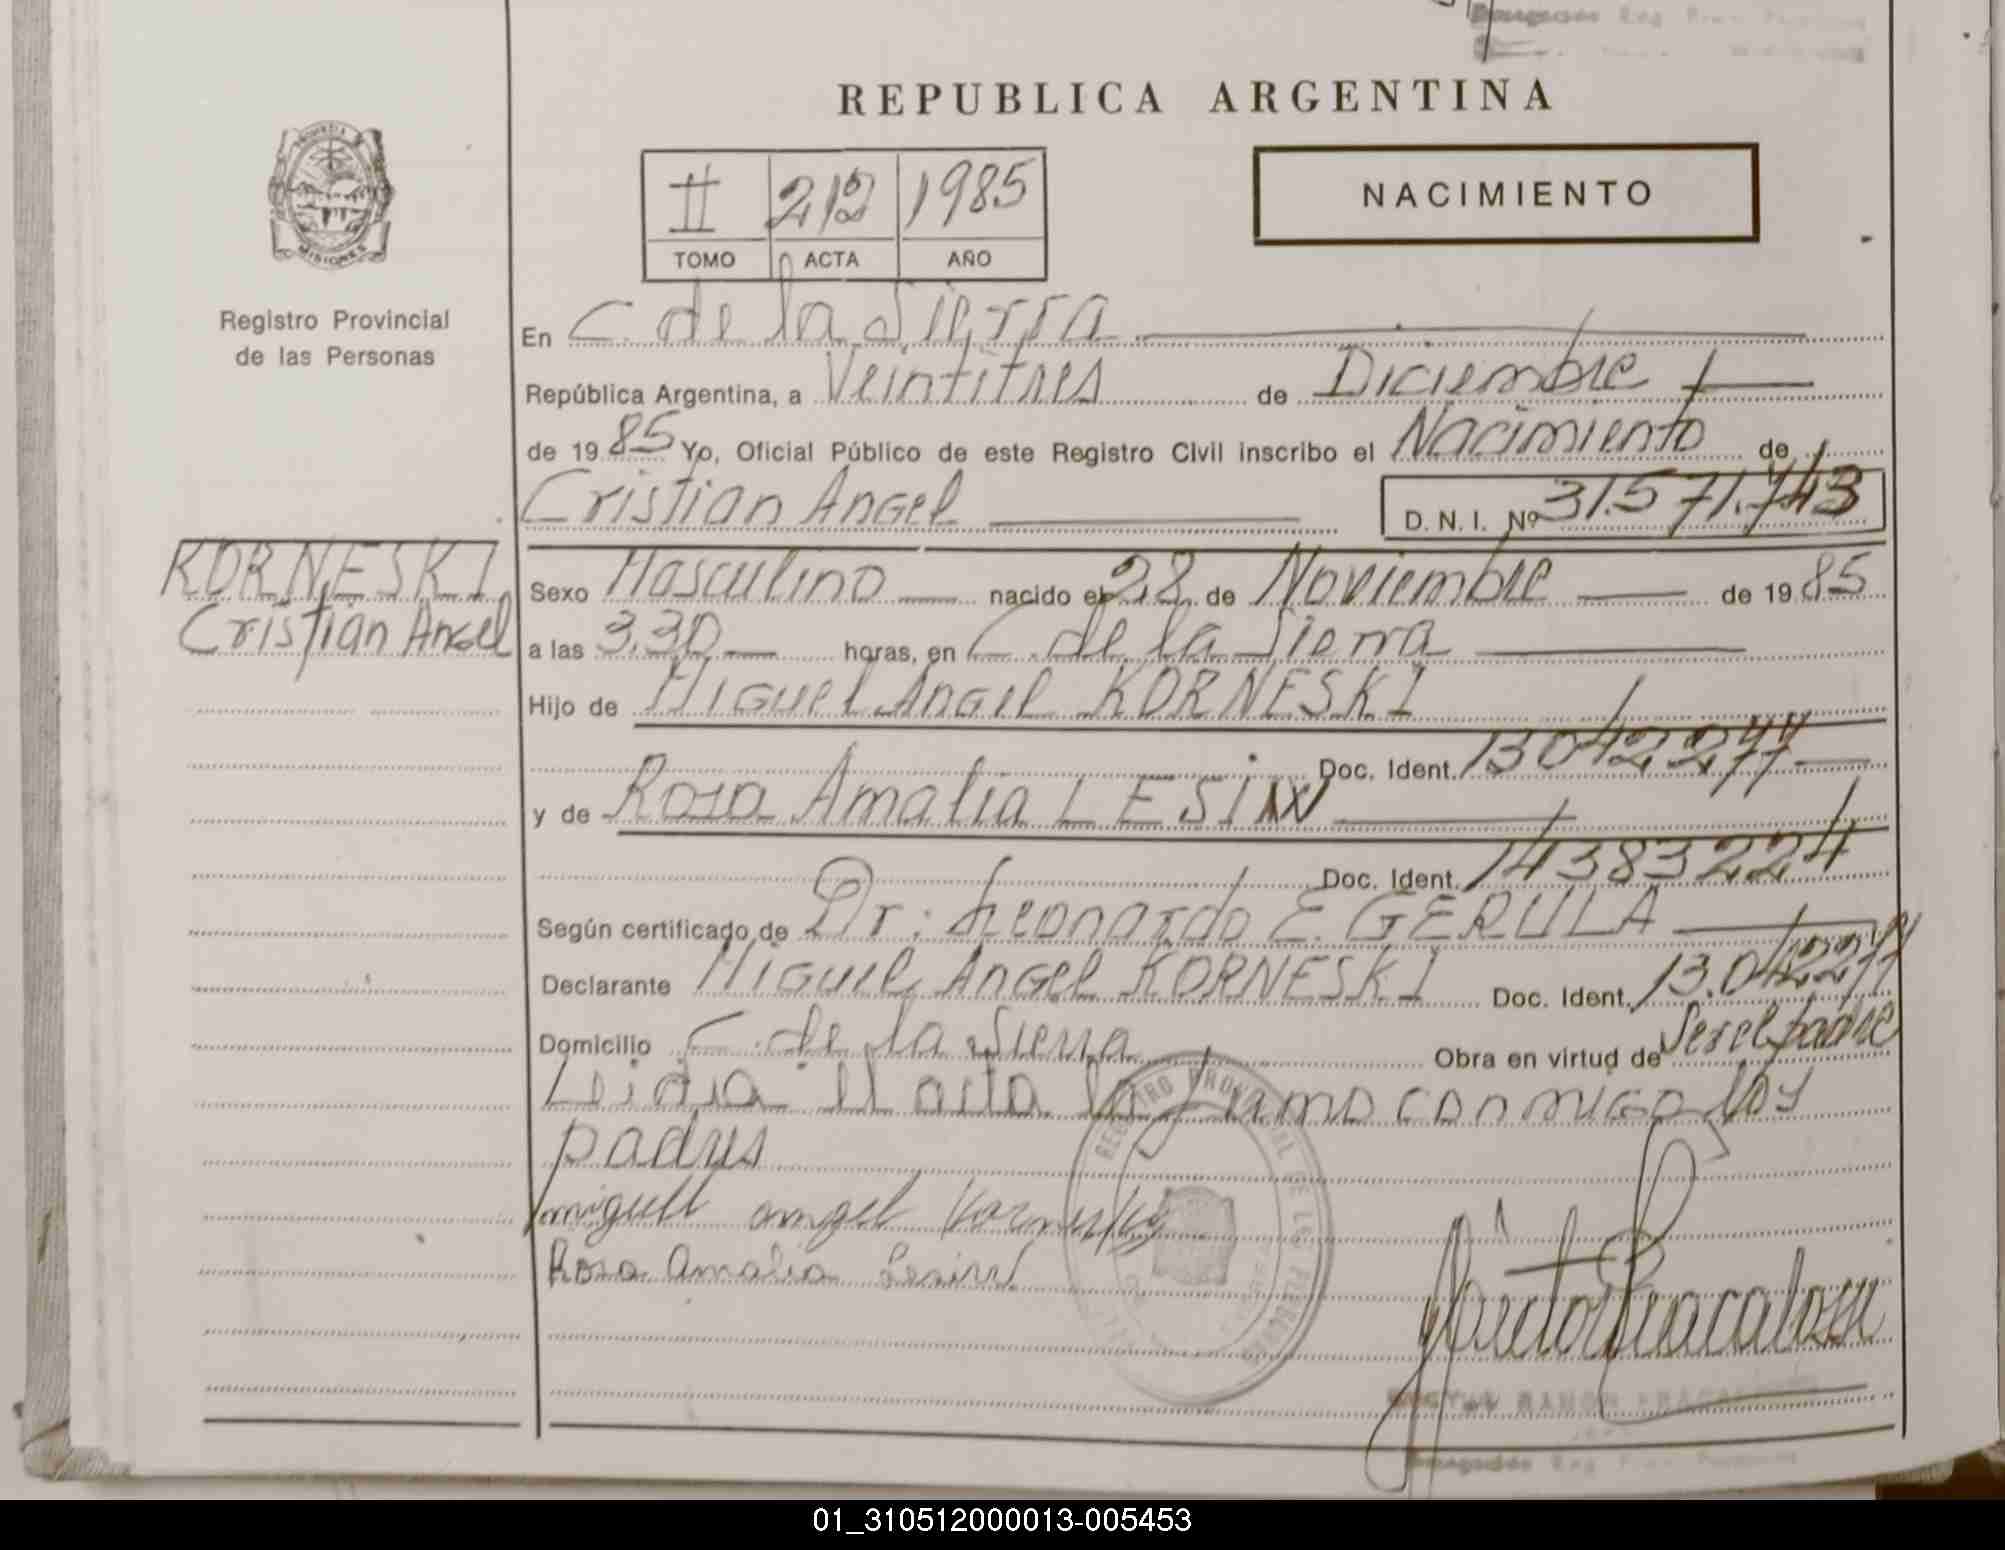 REPUBLICA ARGENTINA
II 212 1985
TOMO ACTA AÑO
NACIMIENTO
MISIONES
Registro Provincial
de las Personas
En C. de la Sierra
República Argentina, a Veintitres de Diciembre
de 19 85 Yo, Oficial Público de este Registro Civil inscribo el Nacimiento de
Cristian Angel D. N. I. Nº 31.571.743
KORNESKI
Cristian Angel
Sexo Masculino nacido el 28 de Noviembre de 19 85
a las 3.30 horas, en C. de la Sierra
Hijo de Miguel Angel KORNESKI
Doc. Ident. 13042277
y de Rosa Amalia LESIW
Doc. Ident. 14383224
Según certificado de Dr: Leonardo E. GERULA
Declarante Miguel Angel KORNESKI Doc. Ident. 13.042277
Domicilio C. de la Sierra Obra en virtud de Ser el padre
Leida el acta la firman conmigo los
padres
miguel angel Korneski
Rosa Amalia Lesiw
REGISTRO PROVINCIAL DE LAS PERSONAS
01_310512000013-005453